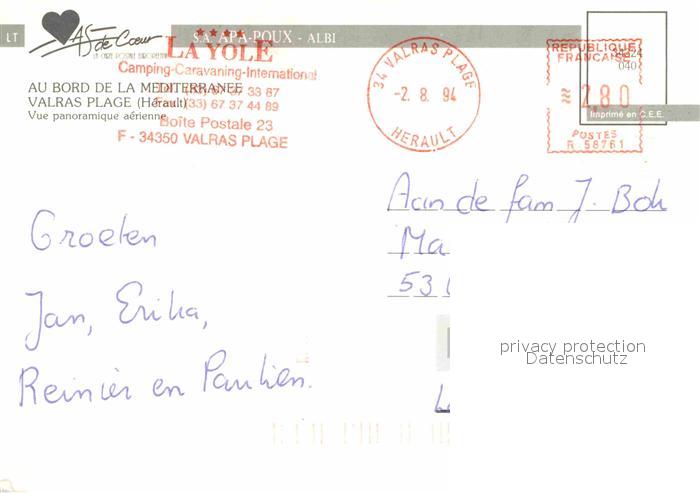 LT
S.A. APA-POUX - ALBI
AS de Cœur
LA YOLE
Camping-Caravaning-International
AU BORD DE LA MEDITERRANEE
VALRAS PLAGE (Hérault)
(33) 67 37 44 89
Vue panoramique aérienne
Boîte Postale 23
F - 34350 VALRAS PLAGE
34 VALRAS PLAGE
-2. 8. 94
HERAULT
REPUBLIQUE
FRANCAISE
040
2,80
Imprimé en C.E.E.
POSTES
R 58761
Aan de fam J. Bok
Ma
53
Groeten
Jan, Erika,
Reinier en Paulien.
privacy protection
Datenschutz